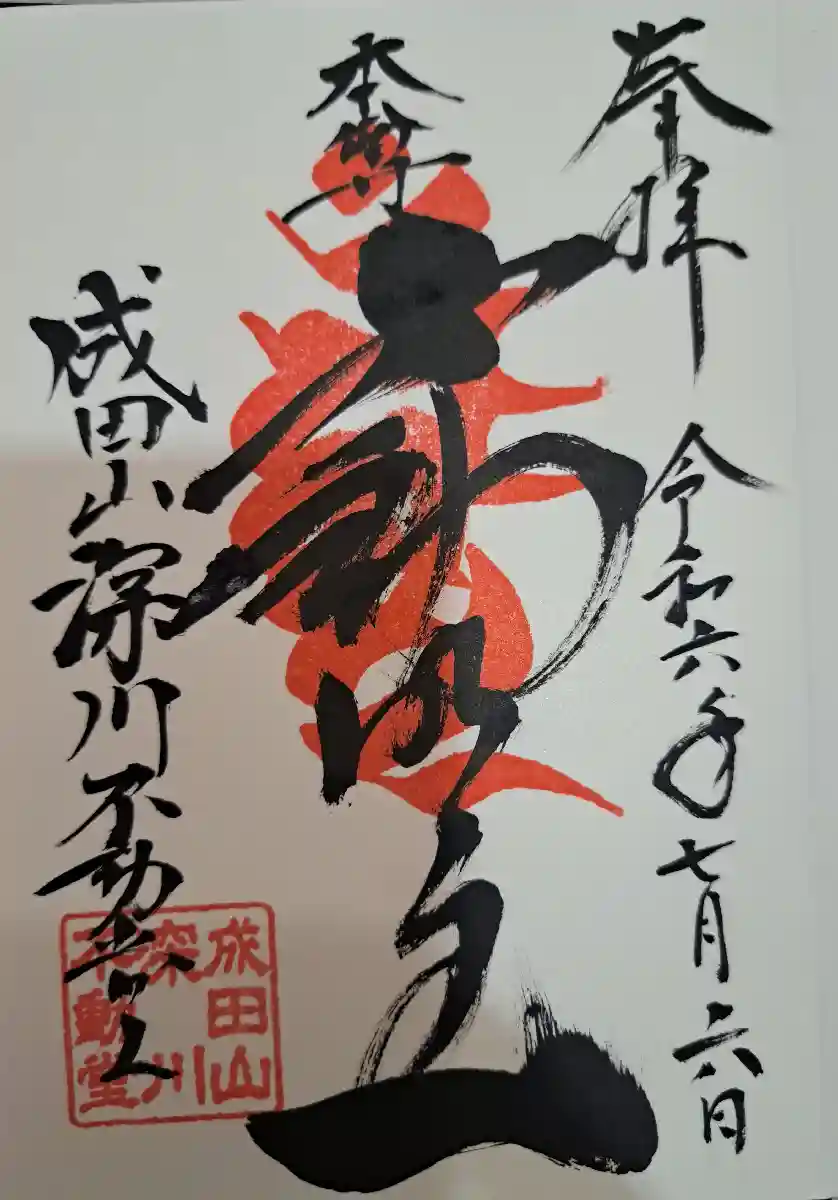 奉拝 令和六年七月六日
本尊
不動明王
成田山深川不動堂
成田山
深川
不動堂